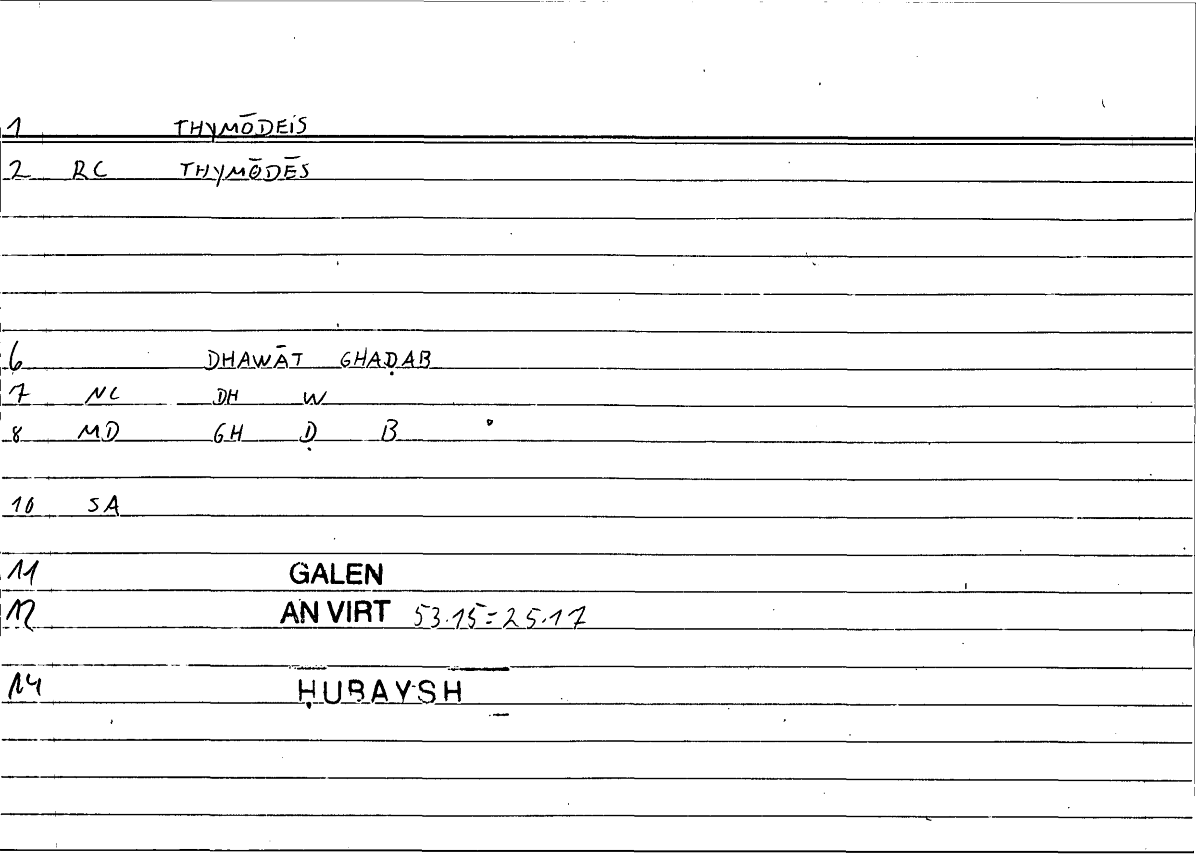 1 THYMŌDEIS
2 RC THYMŌDĒS
6 DHAWĀT GHAḌAB
7 NC DH W
8 MD GH Ḍ B
10 SA
11 GALEN
12 AN VIRT 53.15=25.17
14 ḤUBAYSH